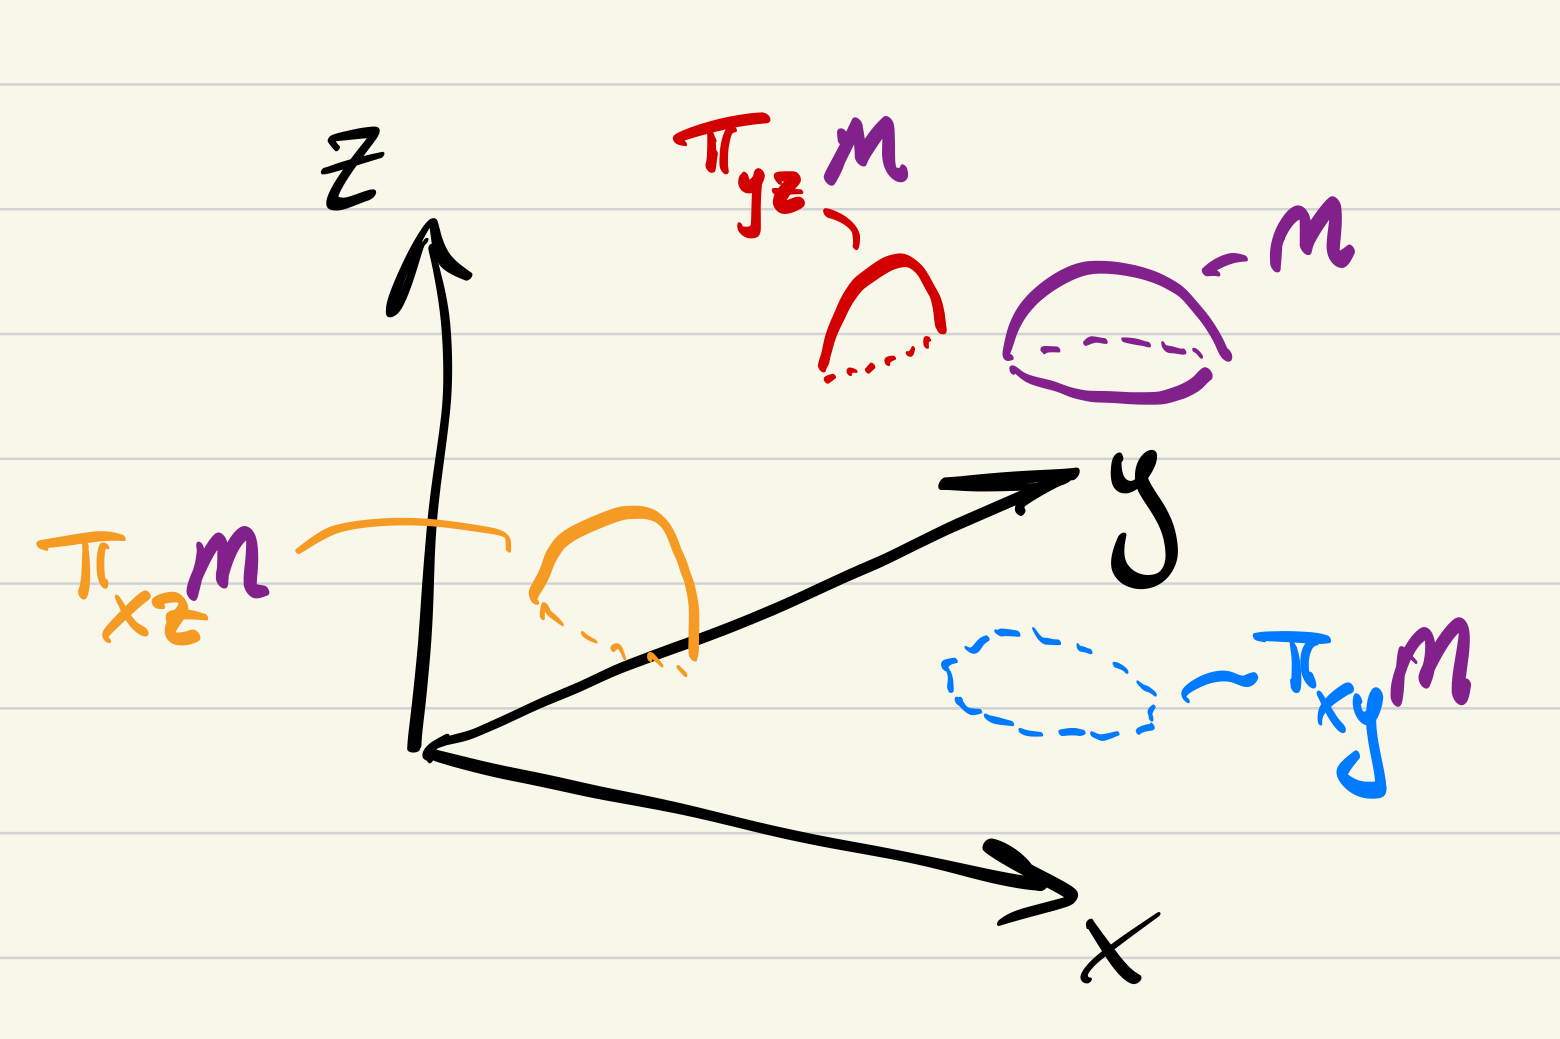 z
π_yz M
M
y
π_xz M
π_xy M
x